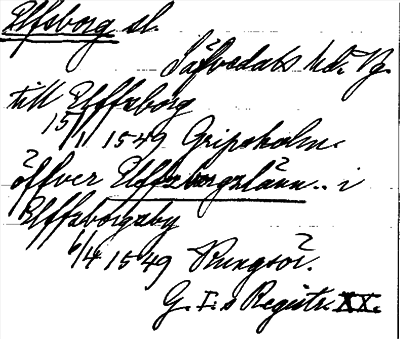 Elfsborg sl.
Säfvedals hd. Vg.
till Elffzborg
15/1 1549 Gripsholm.
öffver Elffzborgzlänn.. i
Elffzborgzby
6/4 1549 Kungsör.
G. I:s Registr. XX.